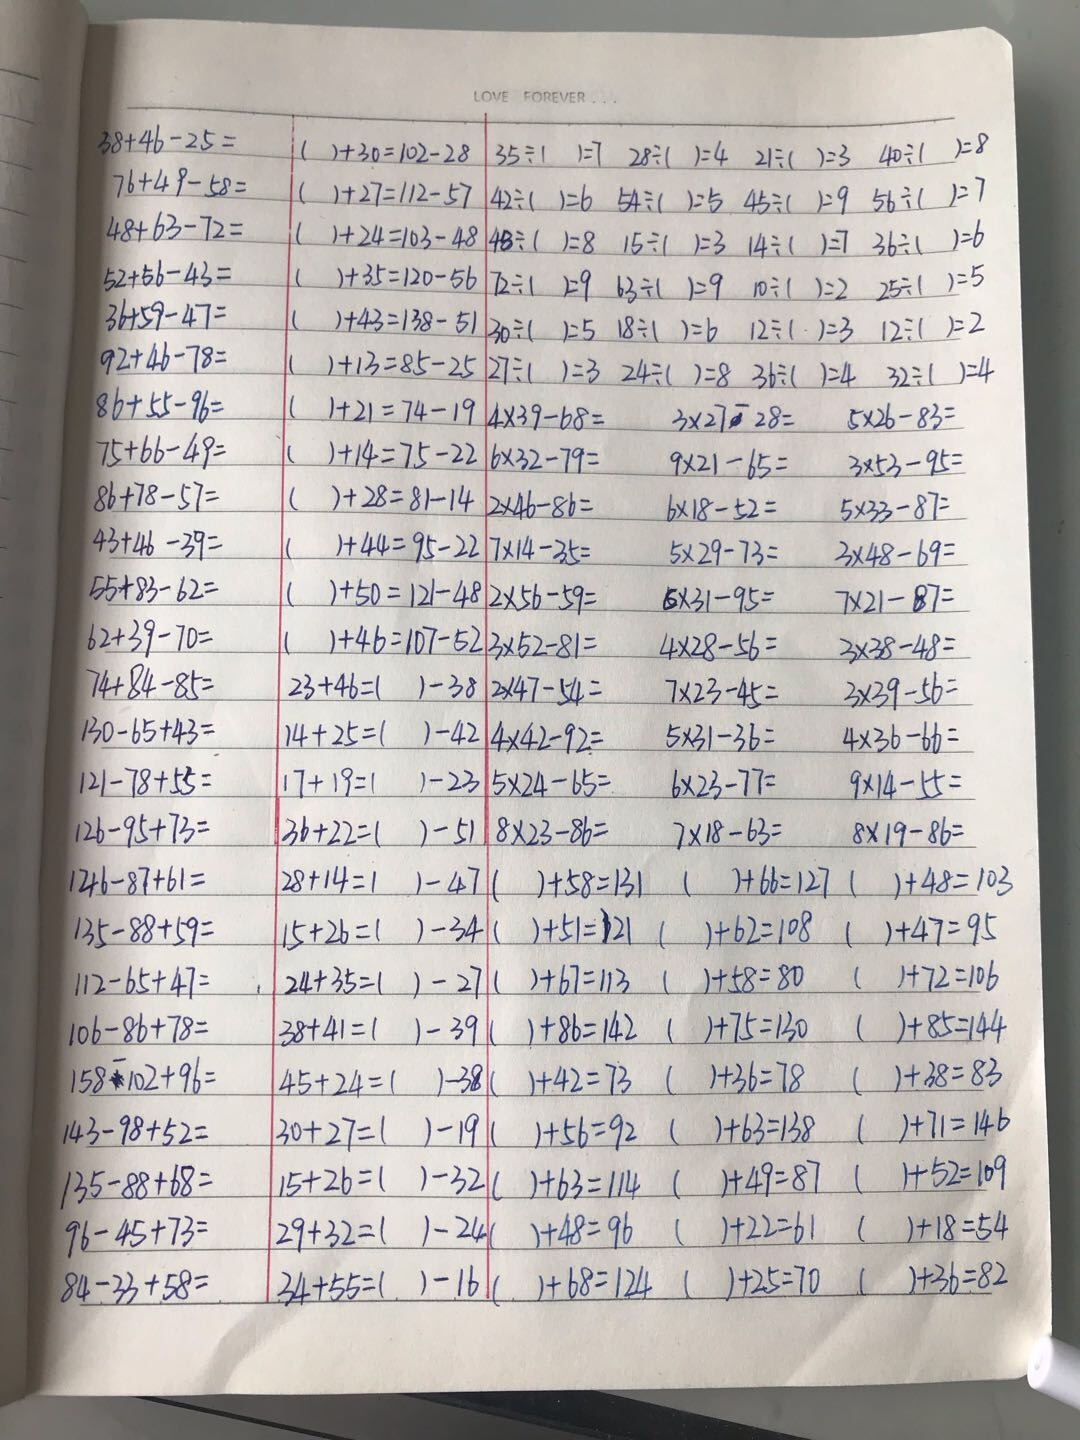 LOVE FOREVER...
38+46-25= ( )+30=102-28 35÷( )=7 28÷( )=4 21÷( )=3 40÷( )=8
76+49-58= ( )+27=112-57 42÷( )=6 54÷( )=5 45÷( )=9 56÷( )=7
48+63-72= ( )+24=103-48 48÷( )=8 15÷( )=3 14÷( )=7 36÷( )=6
52+56-43= ( )+35=120-56 72÷( )=9 63÷( )=9 10÷( )=2 25÷( )=5
36+59-47= ( )+43=138-51 30÷( )=5 18÷( )=6 12÷( )=3 12÷( )=2
92+46-78= ( )+13=85-25 27÷( )=3 24÷( )=8 36÷( )=4 32÷( )=4
86+55-96= ( )+21=74-19 4×39-68= 3×27-28= 5×26-83=
75+66-49= ( )+14=75-22 6×32-79= 9×21-65= 3×53-95=
86+78-57= ( )+28=81-14 2×46-86= 6×18-52= 5×33-87=
43+46-39= ( )+44=95-22 7×14-35= 5×29-73= 3×48-69=
55+83-62= ( )+50=121-48 2×56-59= 6×31-95= 7×21-87=
62+39-70= ( )+46=107-52 3×52-81= 4×28-56= 3×38-48=
74+84-85= 23+46=( )-38 2×47-54= 7×23-45= 3×39-56=
130-65+43= 14+25=( )-42 4×42-92= 5×31-36= 4×36-66=
121-78+55= 17+19=( )-23 5×24-65= 6×23-77= 9×14-55=
126-95+73= 36+22=( )-51 8×23-86= 7×18-63= 8×19-86=
146-87+61= 28+14=( )-47 ( )+58=131 ( )+66=127 ( )+48=103
135-88+59= 15+26=( )-34 ( )+51=121 ( )+62=108 ( )+47=95
112-65+47= 24+35=( )-27 ( )+67=113 ( )+58=80 ( )+72=106
106-86+78= 38+41=( )-39 ( )+86=142 ( )+75=130 ( )+85=144
158-102+96= 45+24=( )-38 ( )+42=73 ( )+36=78 ( )+38=83
143-98+52= 30+27=( )-19 ( )+56=92 ( )+63=138 ( )+71=146
135-88+68= 15+26=( )-32 ( )+63=114 ( )+49=87 ( )+52=109
96-45+73= 29+32=( )-24 ( )+48=96 ( )+22=61 ( )+18=54
84-33+58= 34+55=( )-16 ( )+68=124 ( )+25=70 ( )+36=82